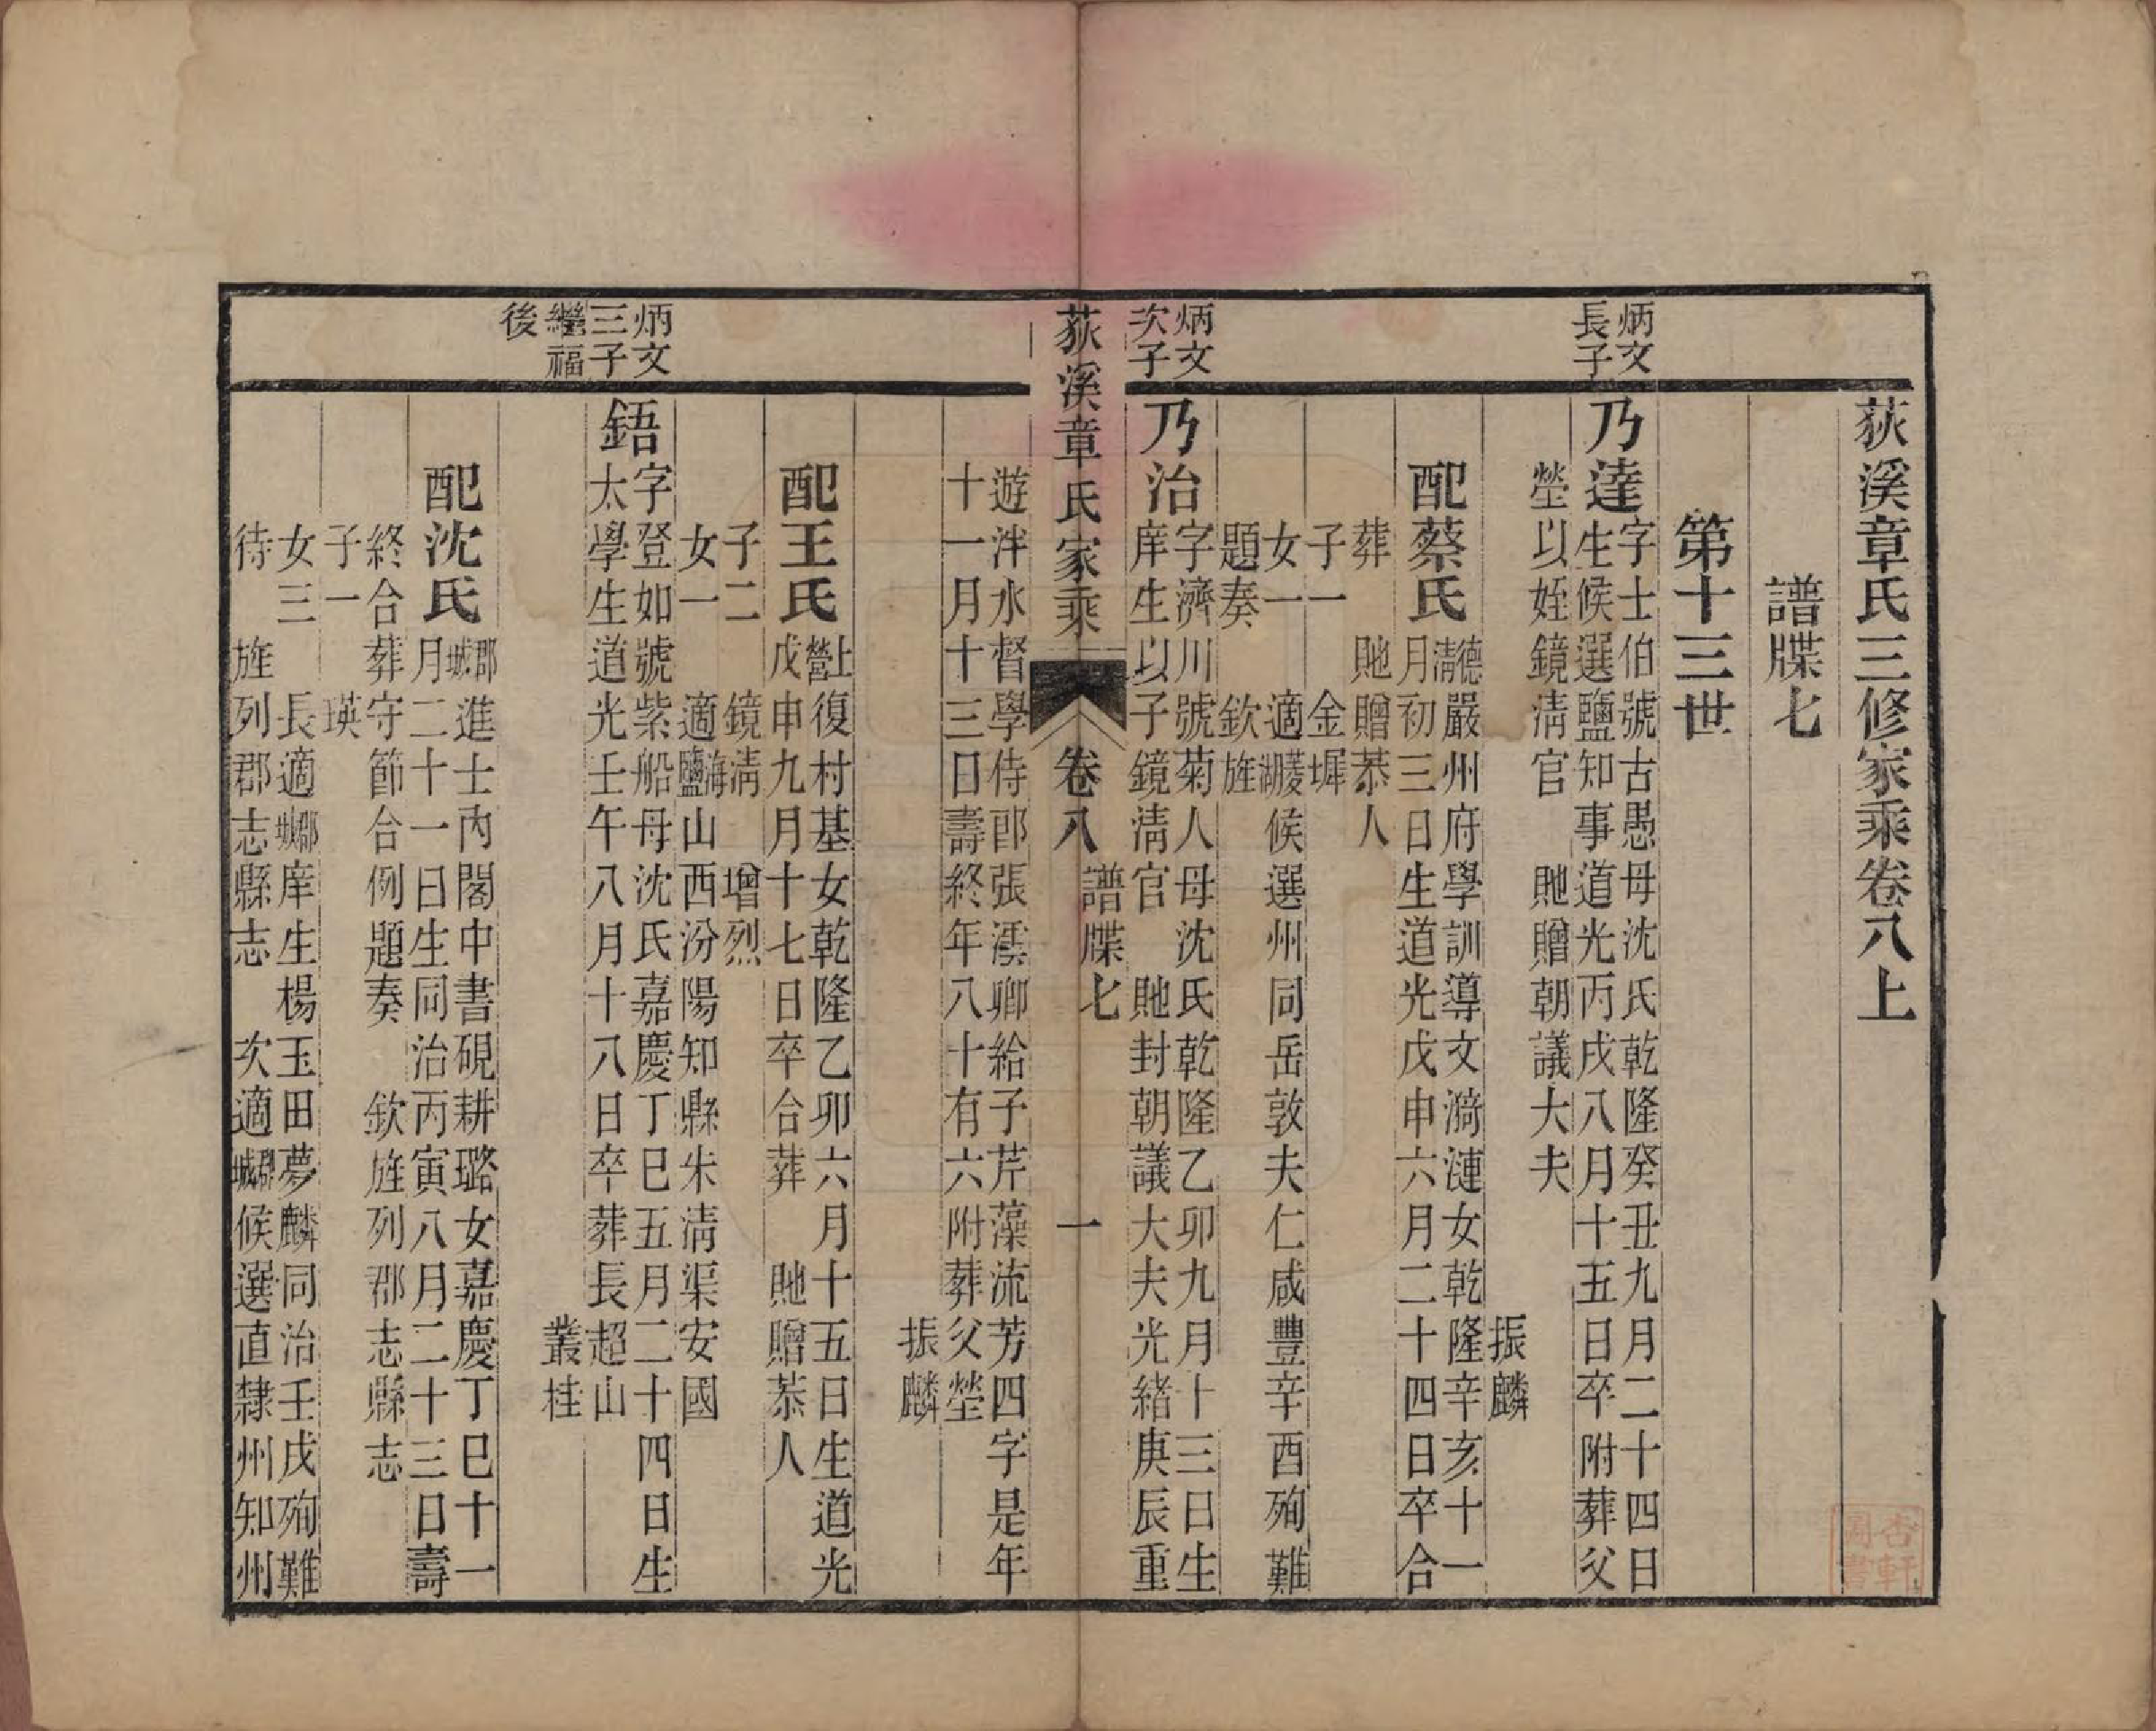 荻溪章氏三修家乘卷八上
譜牒七
第十三世
炳文
長子
乃達
字士伯號古愚母沈氏乾隆癸丑九月二十四日
生候選鹽知事道光丙戌八月十五日卒附葬父
塋以姪鏡淸官　貤贈朝議大夫
振麟
配蔡氏
德淸嚴州府學訓導文漪漣女乾隆辛亥十一
月初三日生道光戊申六月二十四日卒合
葬　貤贈恭人
子一　金墀
女一　適菱湖候選州同岳敦夫仁咸豐辛酉殉難
題奏　欽旌
炳文
次子
乃治
字濟川號菊人母沈氏乾隆乙卯九月十三日生
庠生以子鏡淸官　貤封朝議大夫光緒庚辰重
荻溪章氏家乘
卷八
譜牒七
一
遊泮水督學侍郎張澐卿給子芹藻流芳四字是年
十一月十三日壽終年八十有六附葬父塋
振麟
配王氏
上營復村基女乾隆乙卯六月十五日生道光
戊申九月十七日卒合葬　貤贈恭人
子二　鏡淸　增烈
女一　適海鹽山西汾陽知縣朱淸渠安國
炳文
三子
繼福
後
鋙
字登如號紫船母沈氏嘉慶丁巳五月二十四日生
太學生道光壬午八月十八日卒葬長超山
叢桂
配沈氏
郡城進士內閣中書硯耕璐女嘉慶丁巳十一
月二十一日生同治丙寅八月二十三日壽
終合葬守節合例題奏　欽旌列郡志縣志
子一　瑛
女三　長適郡城庠生楊玉田夢麟同治壬戌殉難
待　旌列郡志縣志　次適郡城候選直隸州知州
杏軒
圖書